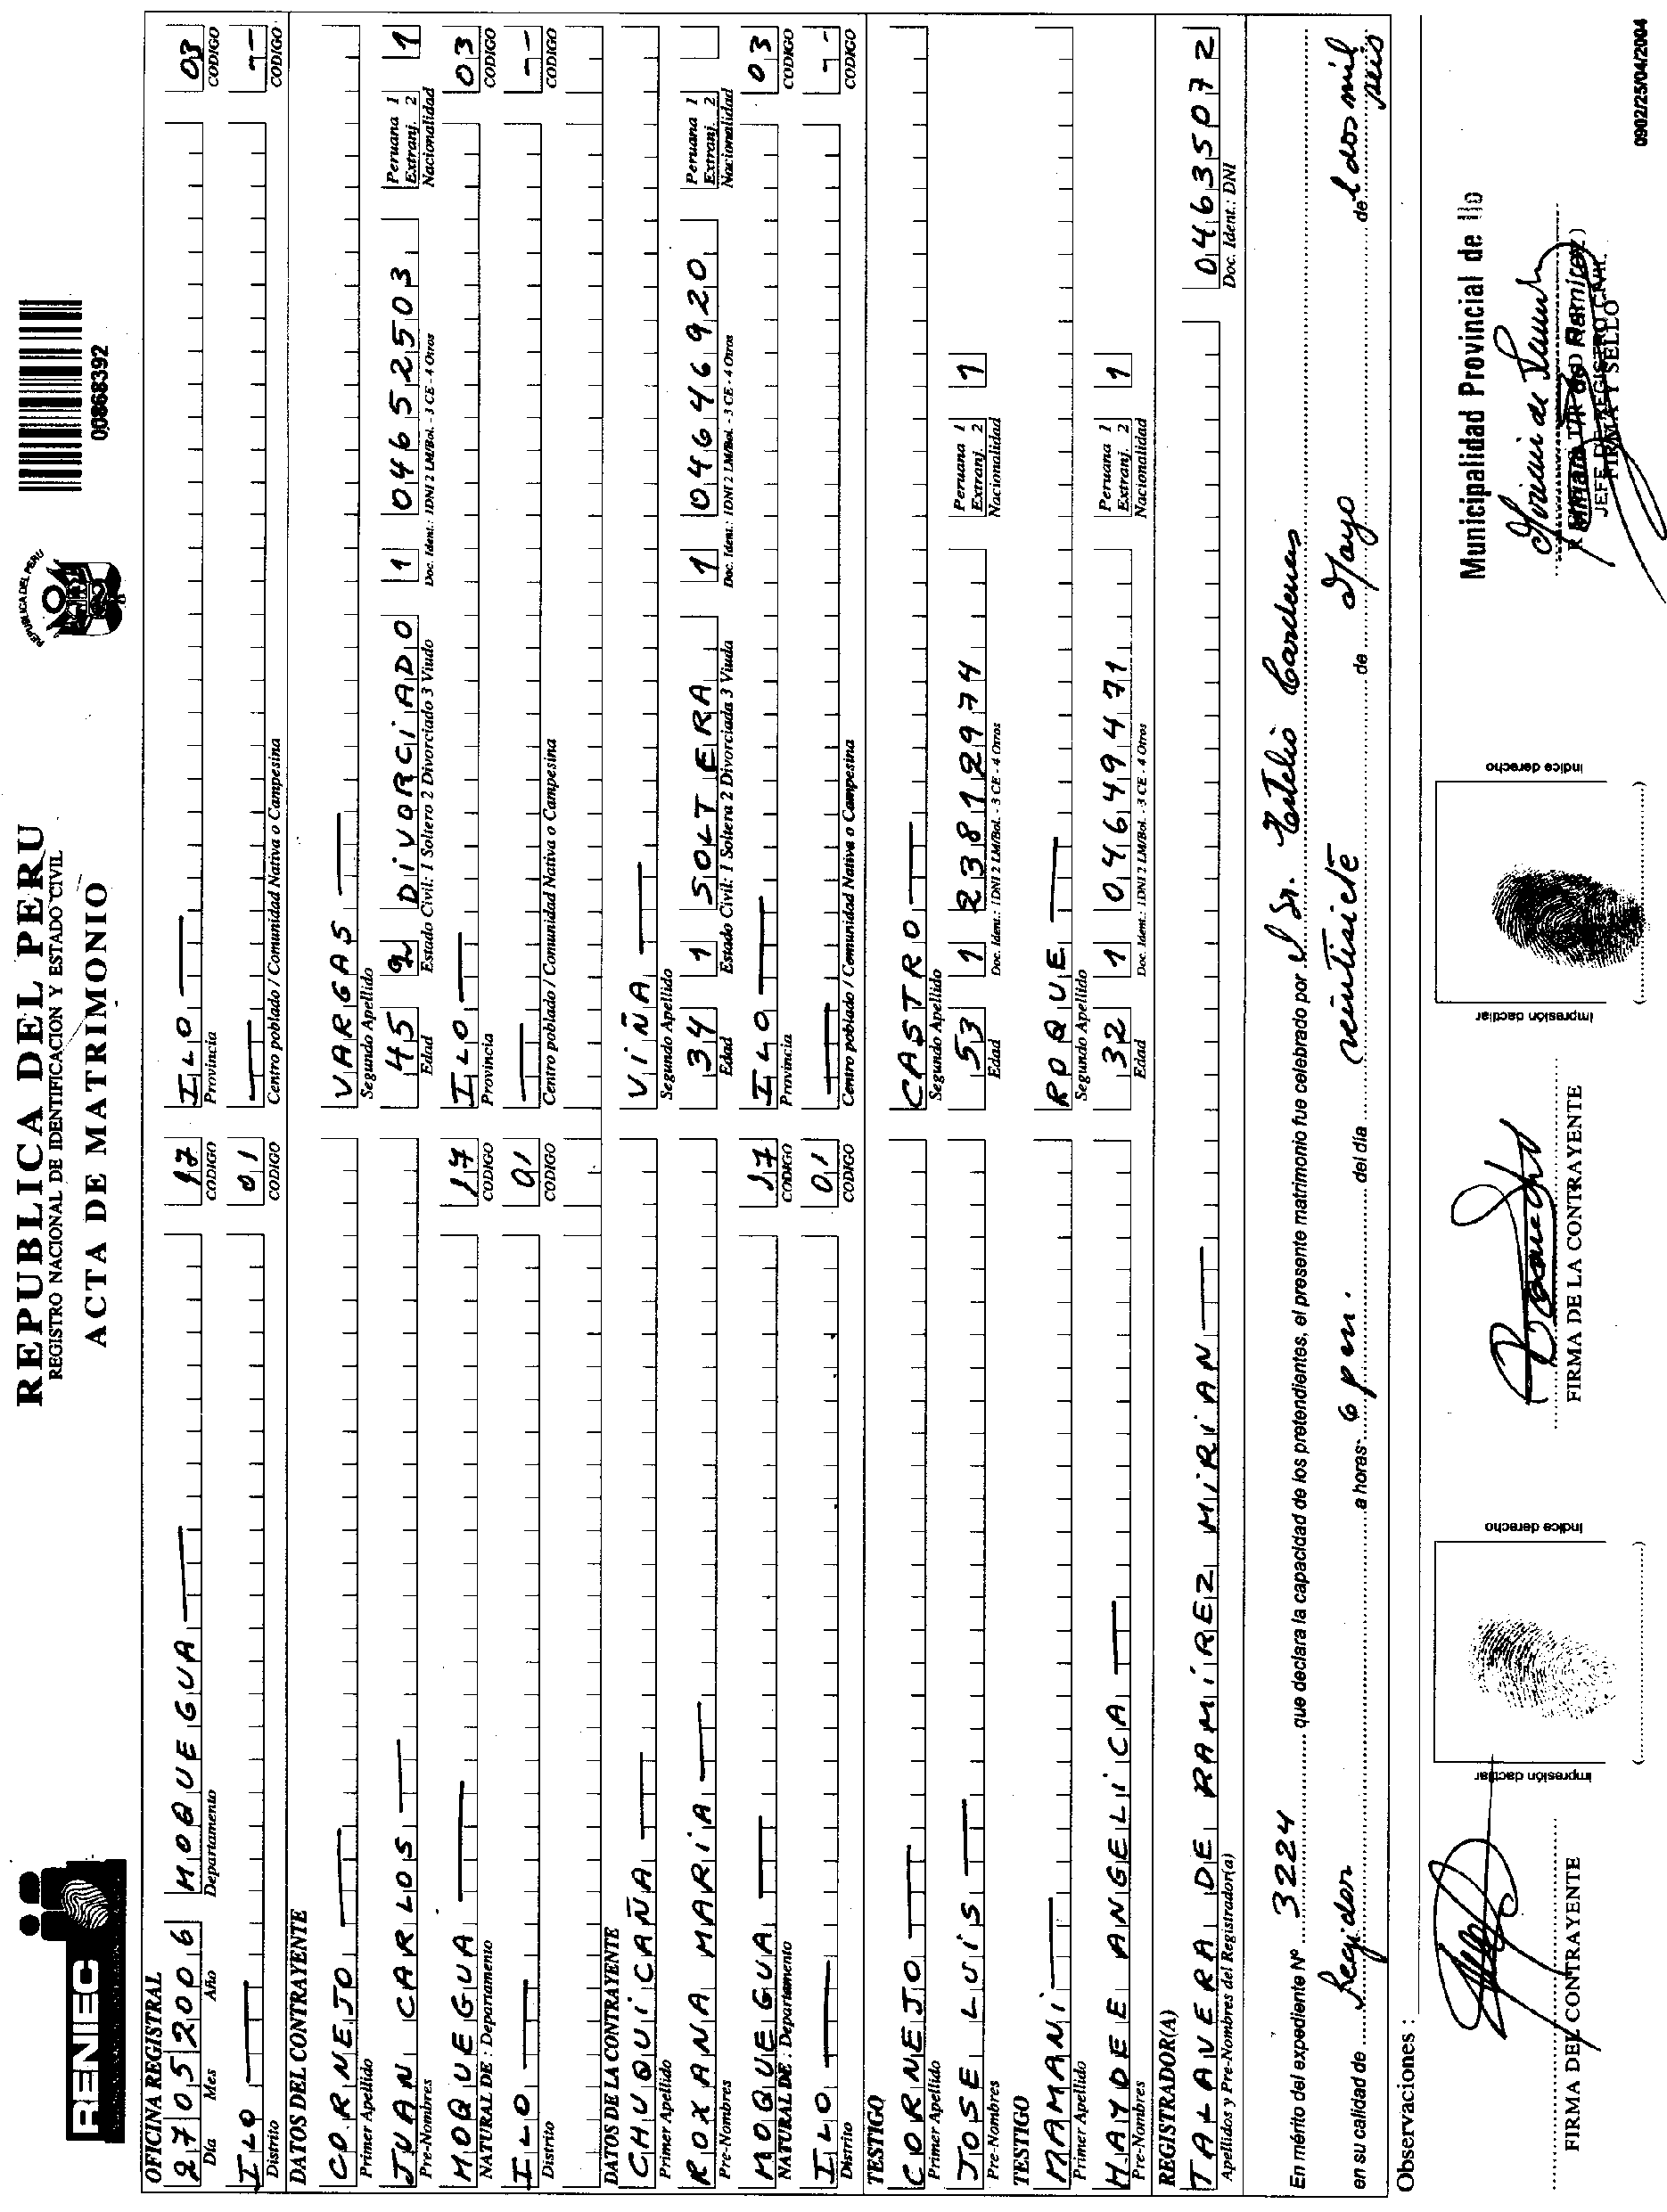 RENIEC
REPUBLICA DEL PERU
REGISTRO NACIONAL DE IDENTIFICACION Y ESTADO CIVIL
ACTA DE MATRIMONIO
REPUBLICA DEL PERU
00868392
OFICINA REGISTRAL
27 05 2006 MOQUEGUA 17 ILO 03
Día Mes Año Departamento CODIGO Provincia CODIGO
ILO 01 --
Distrito CODIGO Centro poblado / Comunidad Nativa o Campesina CODIGO
DATOS DEL CONTRAYENTE
CORNEJO VARGAS
Primer Apellido Segundo Apellido
JUAN CARLOS 45 2 DIVORCIADO 1 04652503 Peruana 1 Extranj. 2 1
Pre-Nombres Edad Estado Civil: 1 Soltero 2 Divorciado 3 Viudo Doc. Ident.: 1DNI 2 LM/Bol. - 3 CE - 4 Otros Nacionalidad
MOQUEGUA 17 ILO 03
NATURAL DE : Departamento CODIGO Provincia CODIGO
ILO 01 --
Distrito CODIGO Centro poblado / Comunidad Nativa o Campesina CODIGO
DATOS DE LA CONTRAYENTE
CHUQUICAÑA VIÑA
Primer Apellido Segundo Apellido
ROXANA MARIA 34 1 SOLTERA 1 04646920 Peruana 1 Extranj. 2
Pre-Nombres Edad Estado Civil: 1 Soltera 2 Divorciada 3 Viuda Doc. Ident.: 1DNI 2 LM/Bol. - 3 CE - 4 Otros Nacionalidad
MOQUEGUA 17 ILO 03
NATURAL DE : Departamento CODIGO Provincia CODIGO
ILO 01 --
Distrito CODIGO Centro poblado / Comunidad Nativa o Campesina CODIGO
TESTIGO
CORNEJO CASTRO
Primer Apellido Segundo Apellido
JOSE LUIS 53 1 23812974 Peruana 1 Extranj. 2 1
Pre-Nombres Edad Doc. Ident.: 1DNI 2 LM/Bol. - 3 CE - 4 Otros Nacionalidad
TESTIGO
MAMANI ROQUE
Primer Apellido Segundo Apellido
HAYDEE ANGELICA 32 1 04649471 Peruana 1 Extranj. 2 1
Pre-Nombres Edad Doc. Ident.: 1DNI 2 LM/Bol. - 3 CE - 4 Otros Nacionalidad
REGISTRADOR(A)
TALAVERA DE RAMIREZ MIRIAN 04635072
Apellidos y Pre-Nombres del Registrador(a) Doc. Ident.: DNI
En mérito del expediente Nº 3224 que declara la capacidad de los pretendientes, el presente matrimonio fue celebrado por el Sr. Cardenas
en su calidad de Regidor a horas 6 pm. del día veintisiete de Mayo del dos mil seis
Observaciones :
Impresión dactilar Indice derecho
Impresión dactilar Indice derecho
Municipalidad Provincial de Ilo
JEFE DE REGISTRO CIVIL
FIRMA Y SELLO
FIRMA DEL CONTRAYENTE
FIRMA DE LA CONTRAYENTE
0902/25/04/2004